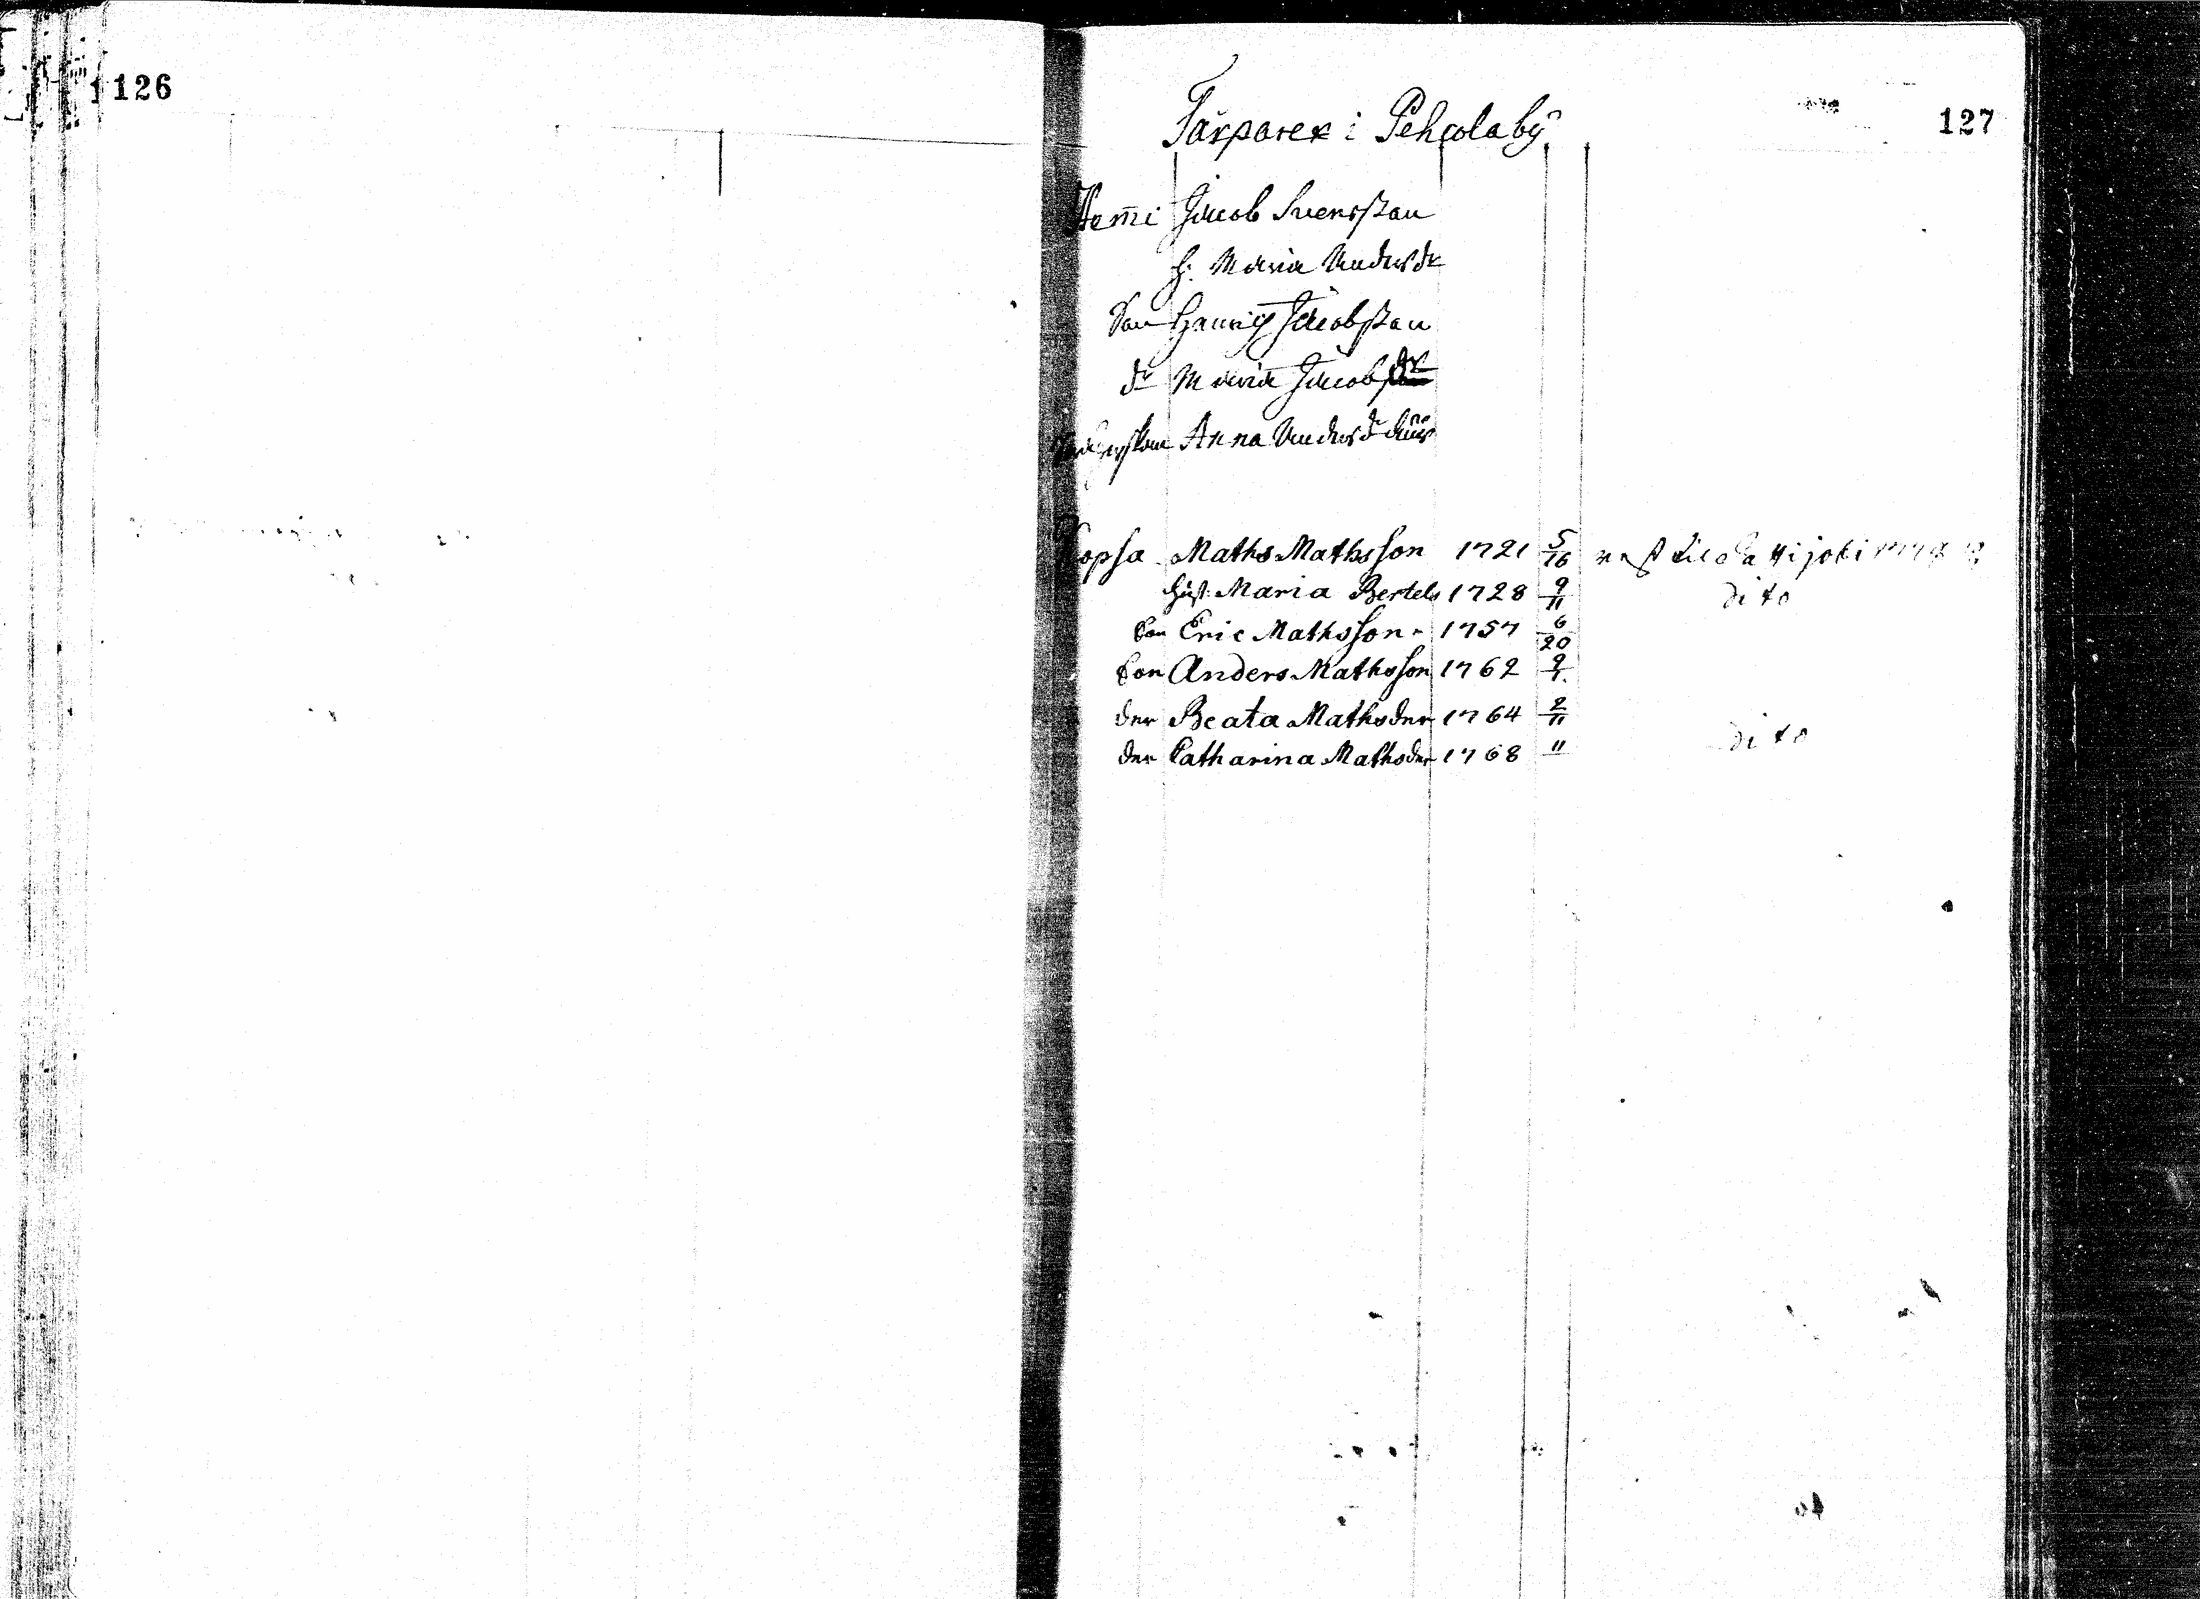 126
127
Torparer i Pehcolabÿ
Hem̄i Jacob Svensson
h. Maria Andersdr
Son Henric Jacobsson
dr Maria Jacobsdr
Anna Andersdr
Kopsa Maths Mathsson 1721 5/16
hust: Maria Bertels 1728 9/11 dito
Son Eric Mathsson 1757 6/20
Son Anders Mathsson 1762 9/1
der Beata Mathsder 1764 2/11
der Catharina Mathsder 1768 " dito